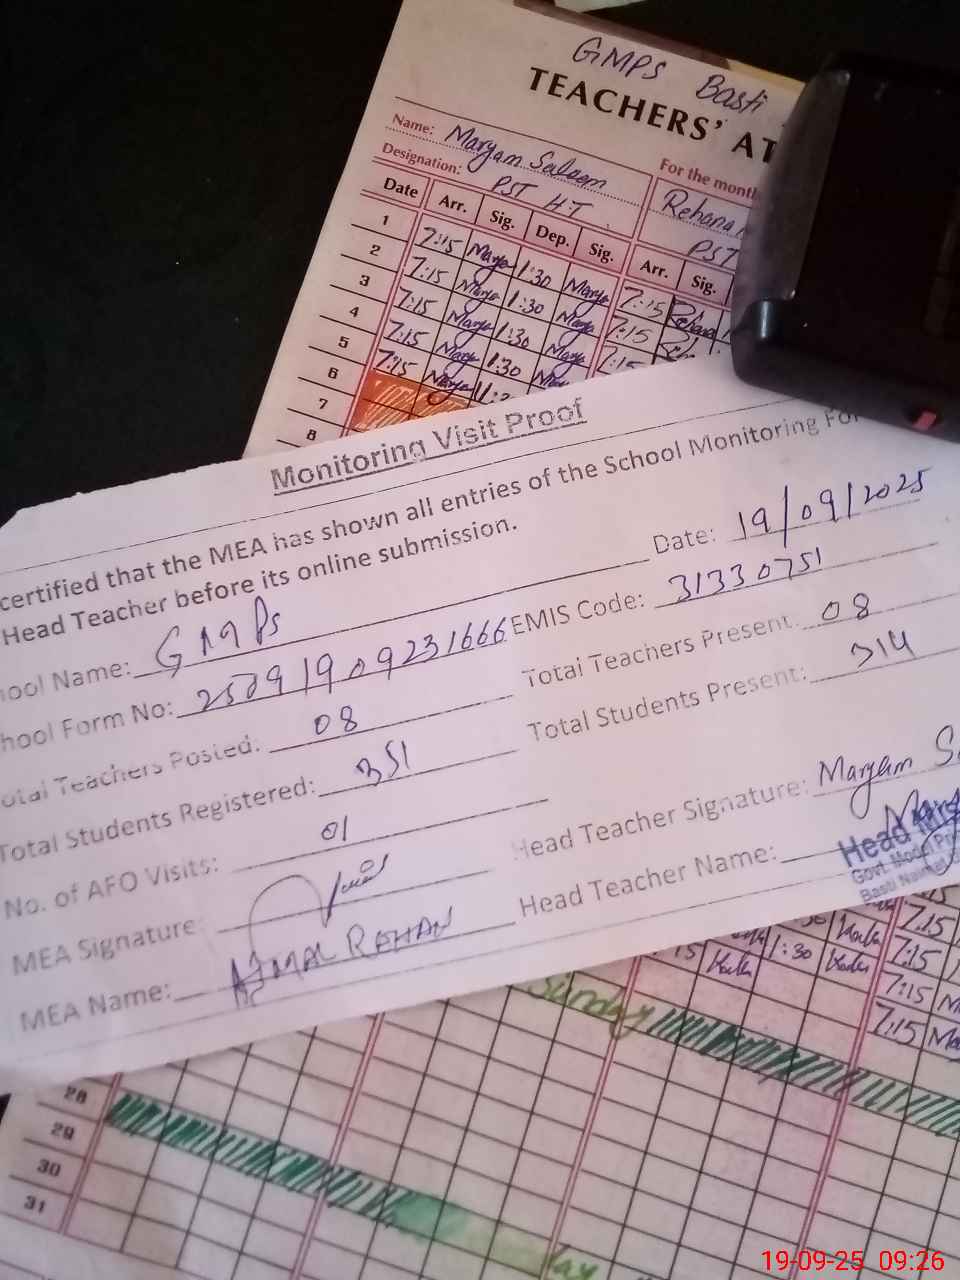 GMPS Basti
TEACHERS' AT
Name: Maryam Saleem
For the month
Designation: PST HT
Rehana
PST
Date Arr. Sig. Dep. Sig. Arr. Sig.
1 7:15 Marya 1:30 Marya 7:15 Rehana
2 7:15 Marya 1:30 Marya 7:15
3 7:15 Marya 1:30 Marya 7:15
4 7:15 Marya 1:30
5 7:15 Marya
6
7
8
Monitoring Visit Proof
certified that the MEA has shown all entries of the School Monitoring For
Head Teacher before its online submission.
Date: 19/09/2025
ool Name: GMPS
EMIS Code: 31330751
hool Form No: 25091909231666
Total Teachers Present: 08
otal Teachers Posted: 08
Total Students Present: 314
Total Students Registered: 351
No. of AFO Visits: 01
Head Teacher Signature: Maryam S
MEA Signature:
Head Teacher Name:
MEA Name: AJMAL REHAN
Head
Govt. Model Pr
Basti
7:15
15 1:30 7:15
7:15
7:15
Sunday
28
29
30
31
19-09-25 09:26